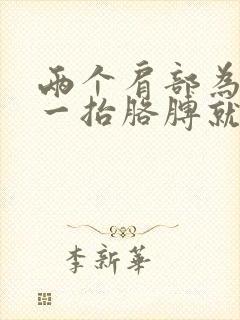 两个肩部為
一抬胳膊就
李新華